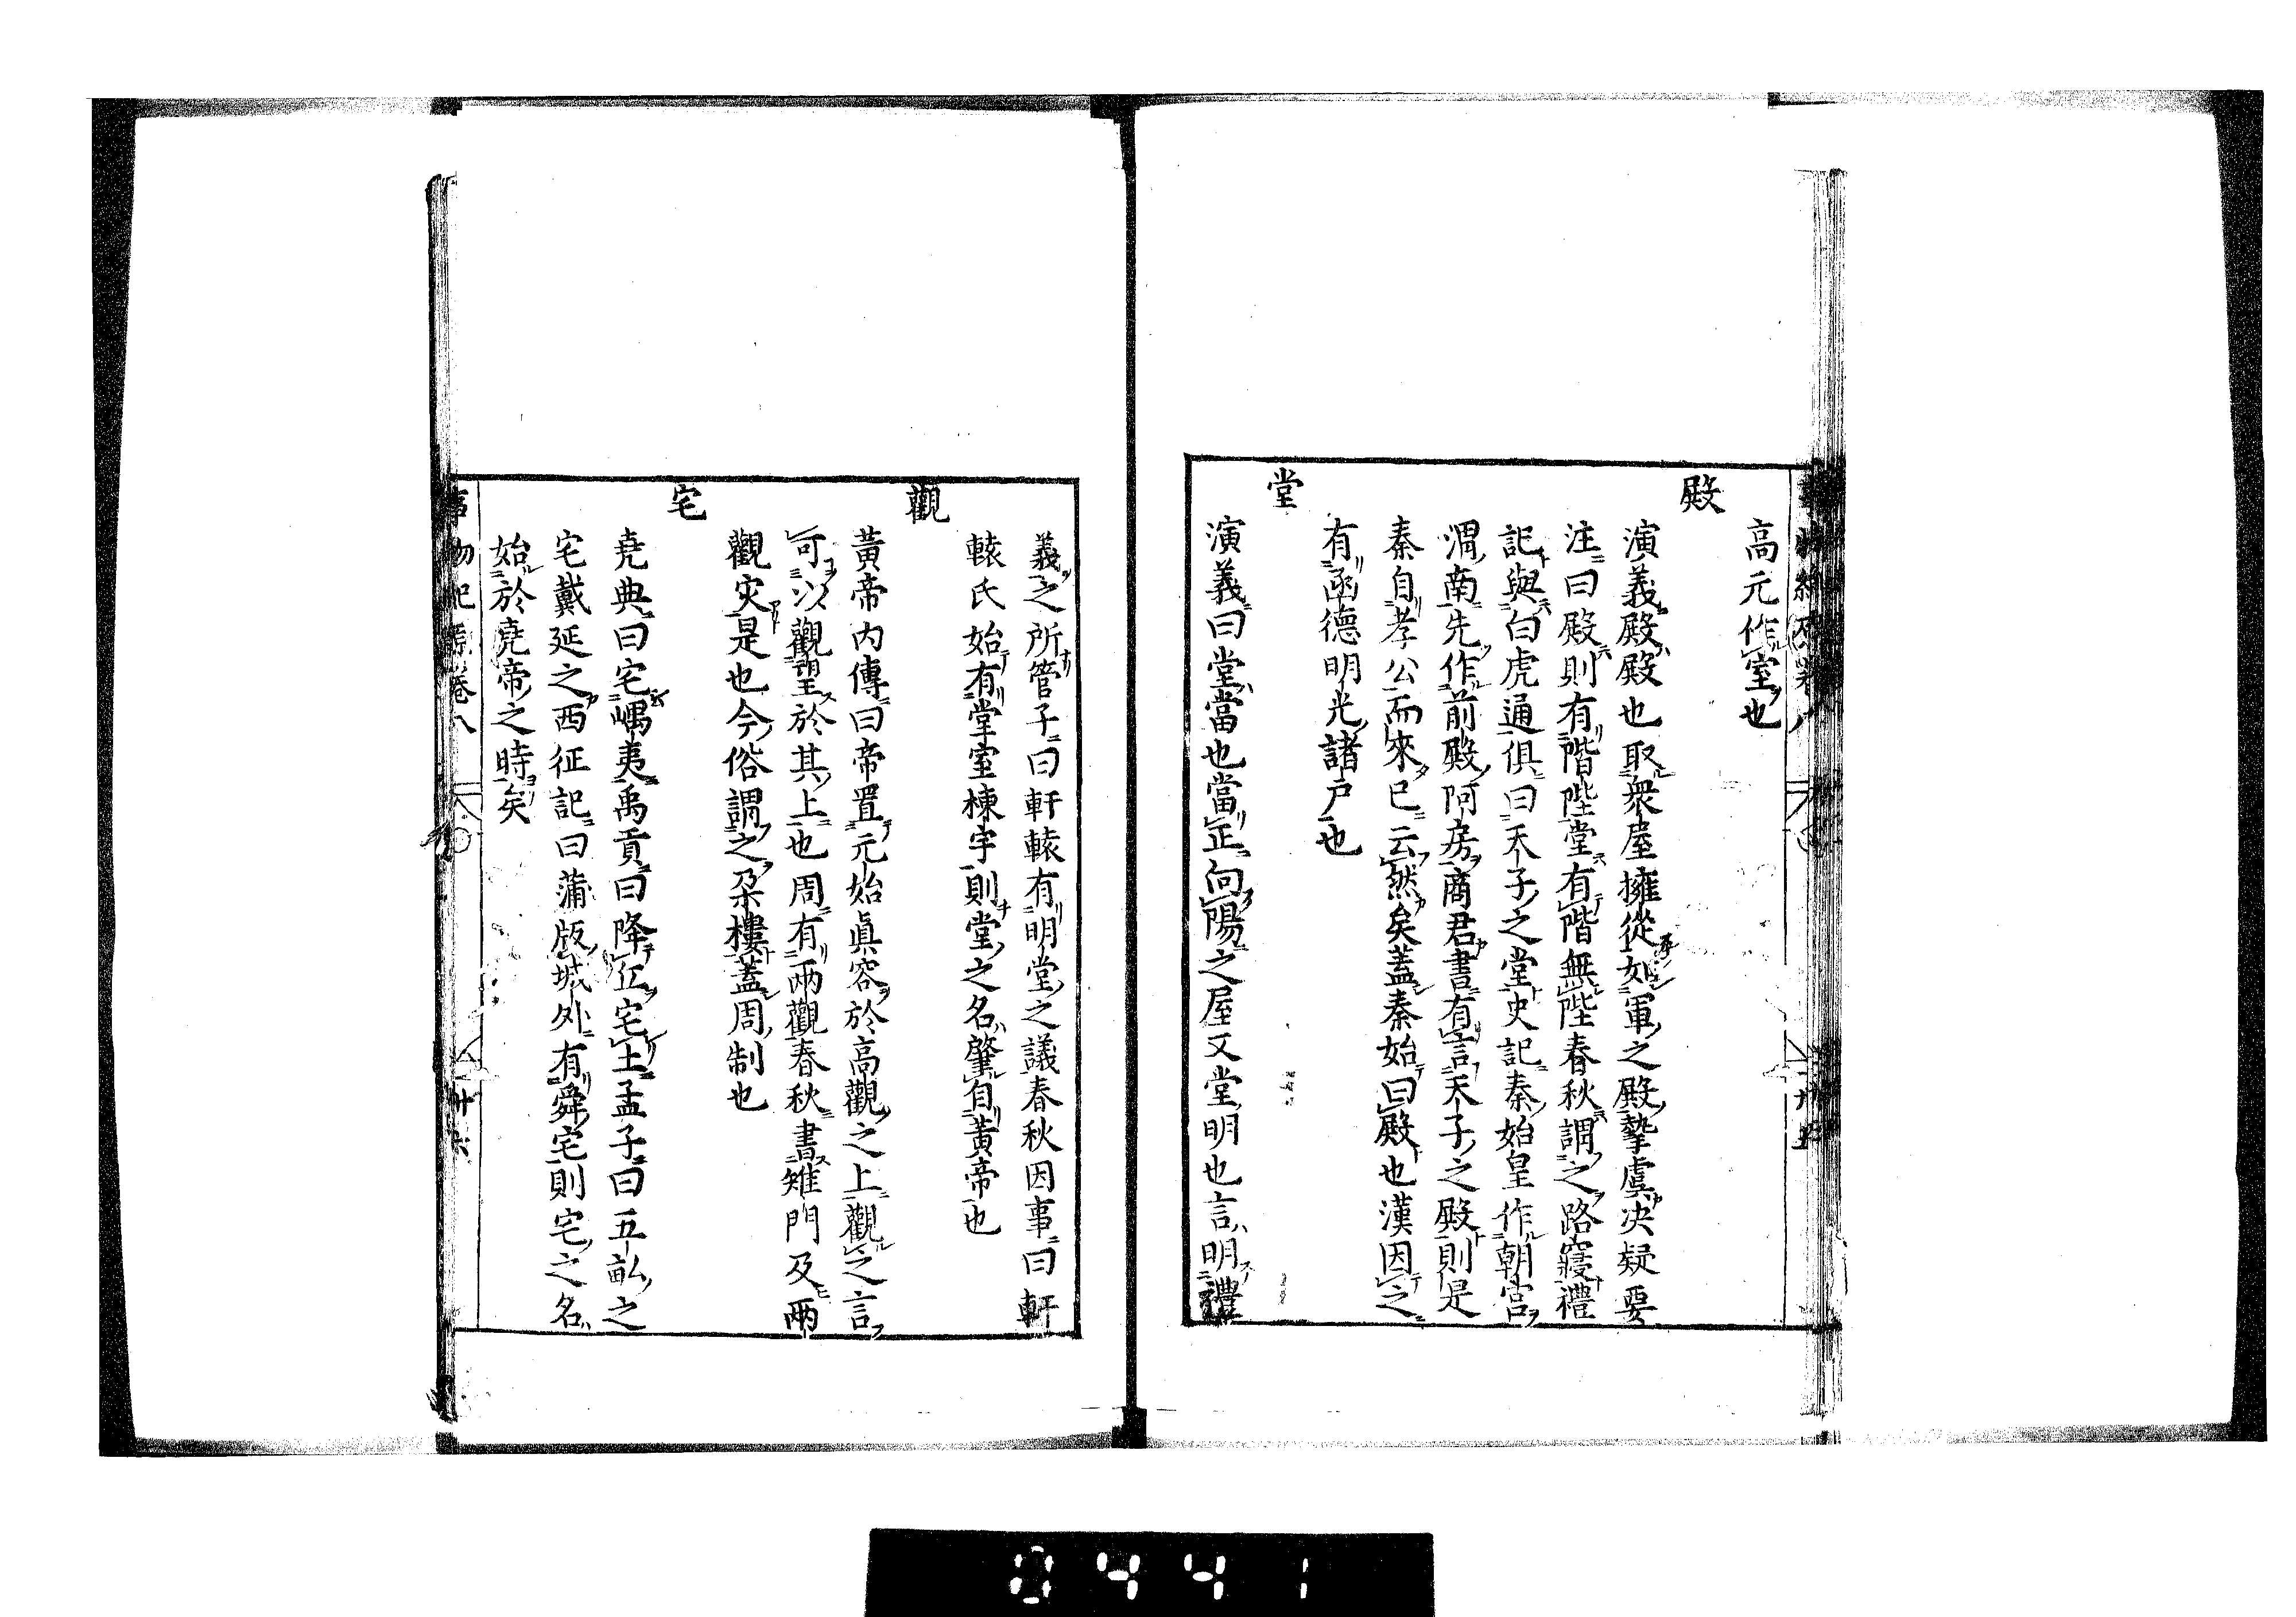 高元作室也
殿
演義殿殿也取衆屋擁從如軍之殿摯虞决疑要
注曰殿則有階陛堂有階無陛春秋謂之路寢禮
記與白虎通俱曰天子之堂史記秦始皇作朝宮
渭南先作前殿阿房商君書有言天子之殿則是
秦自孝公而來已云然矣蓋秦始曰殿也漢因之
有函德明光諸戸也
堂
演義曰堂當也當正向陽之屋又堂明也言明禮
義之所管子曰軒轅有明堂之議春秋因事曰軒
轅氏始有堂室棟宇則堂之名肇自黃帝也
觀
黃帝內傳曰帝置元始眞容於高觀之上觀之言
可以觀望於其上也周有兩觀春秋書雉門及兩
觀灾是也今俗謂之朶樓蓋周制也
宅
堯典曰宅嵎夷禹貢曰降丘宅土孟子曰五畝之
宅戴延之西征記曰蒲版城外有舜宅則宅之名
始於堯帝之時矣
事物紀原卷八
卄六
0441